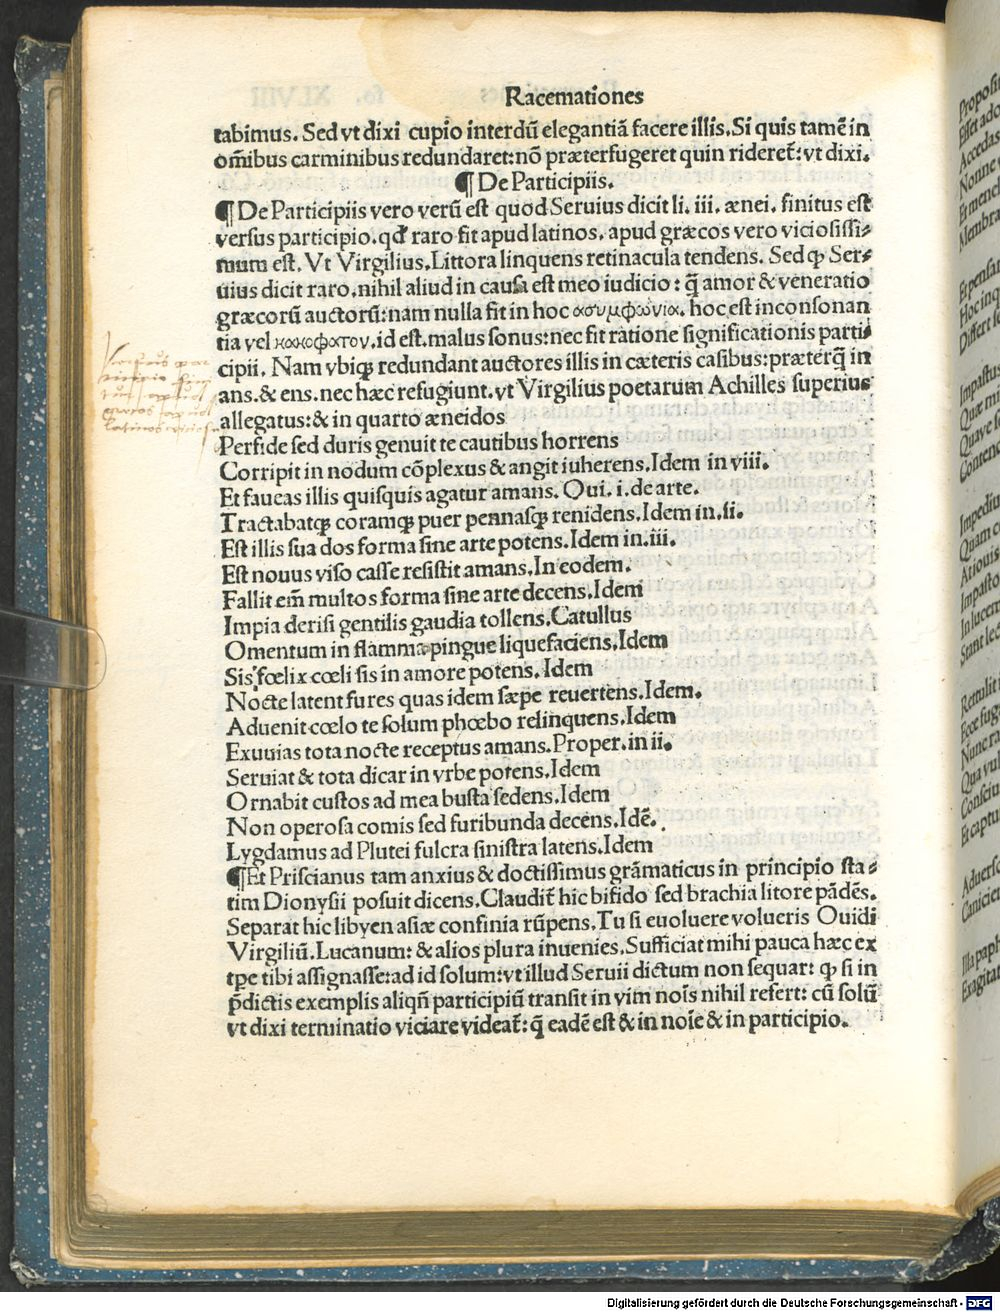 Racemationes
tabimus. Sed vt dixi cupio interdū elegantiā facere illis. Si quis tamē in
oīnibus carminibus redundaret: nō præterfugeret quin rideret̄: vt dixi.
¶ De Participiis.
¶ De Participiis vero verū est quod Seruius dicit li. iii. ænei. finitus est
versus participio. qđ raro fit apud latinos. apud græcos vero viciosissi-
mum est. Vt Virgilius. Littora linquens retinacula tendens. Sed ꝙ Ser-
uius dicit raro. nihil aliud in causa est meo iudicio: q̄ amor & veneratio
græcorū auctorū: nam nulla fit in hoc ασυμφωνια. hoc est inconsonan
tia vel κακοφατον. id est. malus sonus: nec fit ratione significationis parti-
cipii. Nam vbiqꝫ redundant auctores illis in cæteris casibus: præterq̄ in
ans. & ens. nec hæc refugiunt. vt Virgilius poetarum Achilles superius
allegatus: & in quarto æneidos
Perfide sed duris genuit te cautibus horrens
Corripit in nodum cōplexus & angit iuherens. Idem in viii.
Et faucas illis quisquis agatur amans. Oui. i. de arte.
Tractabatqꝫ coramqꝫ puer pennasqꝫ renidens. Idem in. ii.
Est illis sua dos forma sine arte potens. Idem in. iii.
Est nouus viso casse resistit amans. In eodem.
Fallit em̄ multos forma sine arte decens. Idem
Impia derisi gentilis gaudia tollens. Catullus
Omentum in flamma pingue liquefaciens. Idem
Sis fœlix cœli sis in amore potens. Idem
Nocte latent fures quas idem sæpe reuertens. Idem.
Aduenit cœlo te solum phœbo relinquens. Idem
Exuuias tota nocte receptus amans. Proper. in ii.
Seruiat & tota dicar in vrbe potens. Idem
Ornabit custos ad mea busta sedens. Idem
Non operosa comis sed furibunda decens. Idē.
Lygdamus ad Plutei fulcra sinistra latens. Idem
¶ Et Priscianus tam anxius & doctissimus grāmaticus in principio sta-
tim Dionysii posuit dicens. Claudit̄ hic bifido sed brachia litore pādēs.
Separat hic libyen asiæ confinia rūpens. Tu si euoluere volueris Ouidi
Virgiliū. Lucanum: & alios plura inuenies. Sufficiat mihi pauca hæc ex
tp̄e tibi assignasse: ad id solum: vt illud Seruii dictum non sequar: ꝙ si in
p̄dictis exemplis aliqn̄ participiū transit in vim nois̄ nihil refert: cū solū
vt dixi terminatio viciare videat̄: q̄ eadē est & in noīe & in participio.
Versus par
ticipio
græcos
latinos
Proposit
Esset ado
Accedas
Nonne
Et mend
Membra
Et pensat
Hoc inq
Differt
Impastus
Quæ mi
Quave
Contend
Impediu
Quam
Impasto
In lucem
Stant
Rettulit
Ecce fug
Nunc ra
Qua vul
Consciu
Et captu
Aduers
Canicie
Illa paph
Exagitat
Digitalisierung gefördert durch die Deutsche Forschungsgemeinschaft - DFG